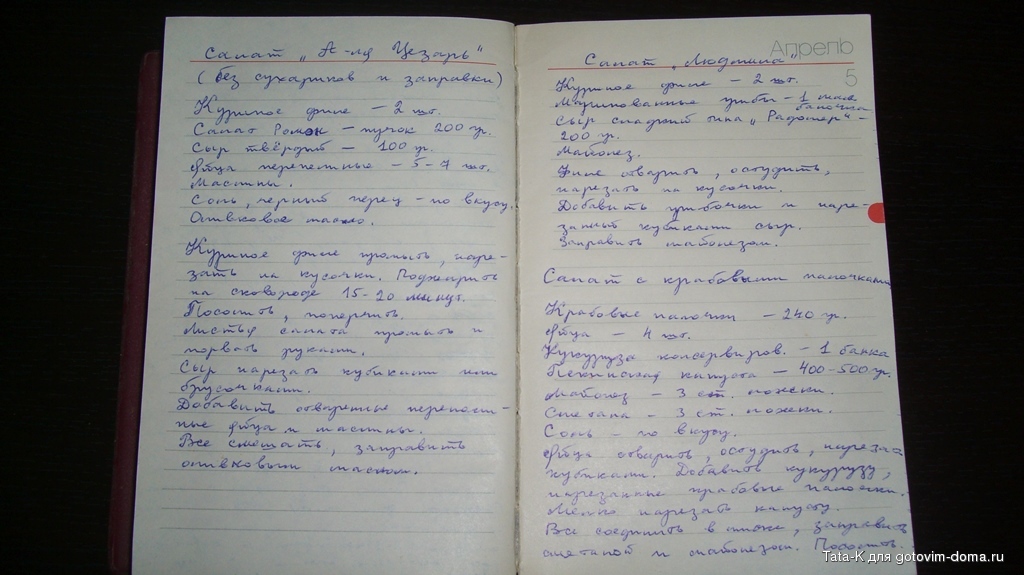 Салат „А-ля Цезарь"
(без сухариков и заправки)
Куриное филе – 2 шт.
Салат Ромэн – пучок 200 гр.
Сыр твёрдый – 100 гр.
Яйца перепелиные – 5-7 шт.
Маслины.
Соль, черный перец – по вкусу.
Оливковое масло.
Куриное филе промыть, наре-
зать на кусочки. Поджарить
на сковороде 15-20 минут.
Посолить, поперчить.
Листья салата промыть и
порвать руками.
Сыр нарезать кубиками или
брусочками.
Добавить отваренные перепели-
ные яйца и маслины.
Все смешать, заправить
оливковым маслом.
Апрель
5
Салат „Людмила"
Куриное филе – 2 шт.
Маринованные грибы – 1 мал.
баночка
Сыр сладкий типа „Радомер" –
200 гр.
Майонез.
Филе отварить, остудить,
нарезать на кусочки.
Добавить грибочки и наре-
занный кубиками сыр.
Заправить майонезом.
Салат с крабовыми палочками
Крабовые палочки – 240 гр.
Яйца – 4 шт.
Кукуруза консервиров. – 1 банка
Пекинская капуста – 400-500 гр.
Майонез – 3 ст. ложки.
Сметана – 3 ст. ложки.
Соль – по вкусу.
Яйца отварить, остудить, нареза
кубиками. Добавить кукурузу,
нарезанные крабовые палочки.
Мелко нарезать капусту.
Все соединить в миске, заправить
сметаной и майонезом. Посолить.
Tata-K для gotovim-doma.ru